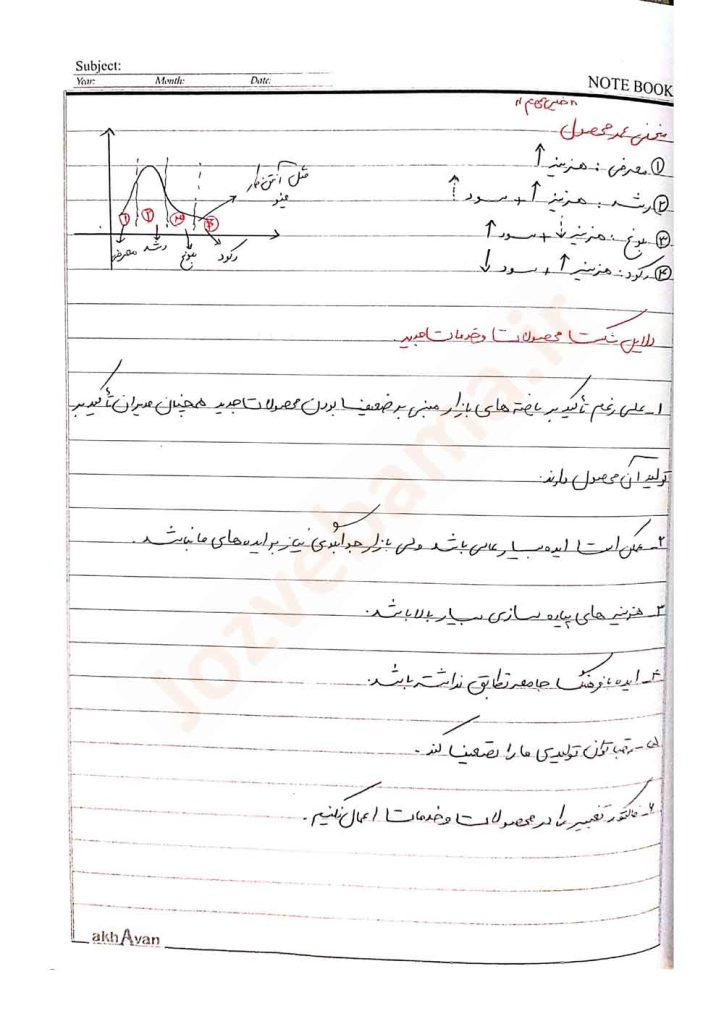 Subject:
Year: Month: Date:
NOTE BOOK
"خیلی مهم"
منحنی عمر محصول
① معرفی: هزینه ↑
② رشد: هزینه ↑ + سود ↑
③ بلوغ: هزینه ↓ + سود ↑
④ رکود: هزینه ↑ + سود ↓
مثل آتش‌نشان
① ② ③ ④
معرفی رشد بلوغ رکود
دلایل شکست محصولات و خدمات جدید
۱- علی رغم تأکید بر یافته های بازار مبنی بر ضعیف بودن محصولات جدید همچنان مدیران تأکید بر
تولید آن محصول دارند.
۲- ممکن است ایده بسیار عالی باشد ولی بازار جوابگوی نیاز بر ایده های ما نباشد.
۳- هزینه های پیاده سازی بسیار بالا باشد.
۴- ایده با فرهنگ جامعه تطابق نداشته باشد.
۵- رقبا توان تولیدی ما را تضعیف کند.
۶- فاکتور تغییر را در محصولات و خدمات اعمال نکنیم.
Jozvebama.ir
akhAvan